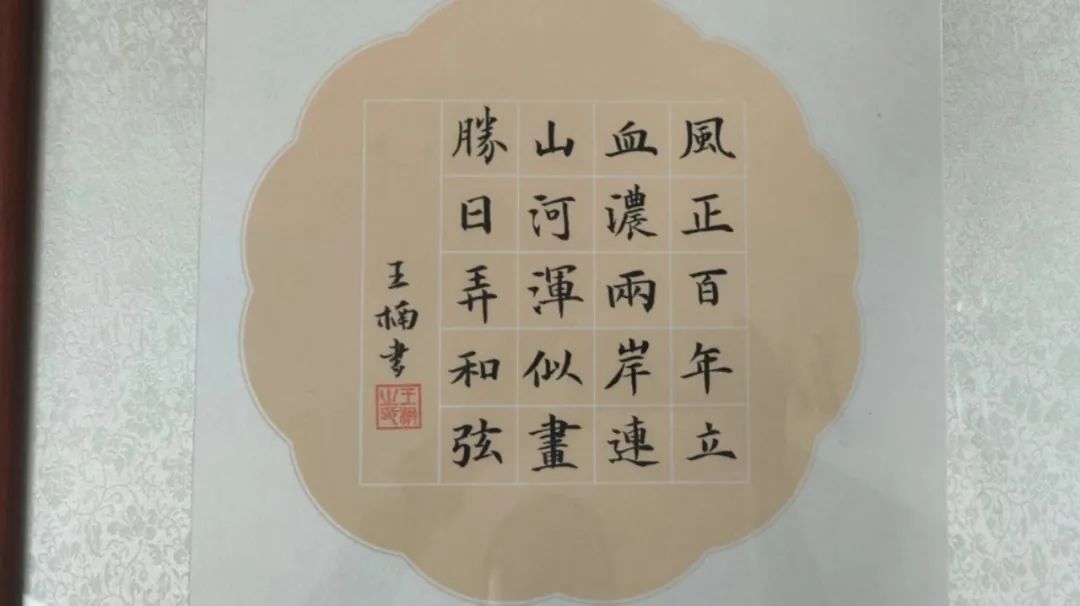 風正百年立
血濃兩岸連
山河渾似畫
勝日弄和弦
王楠書